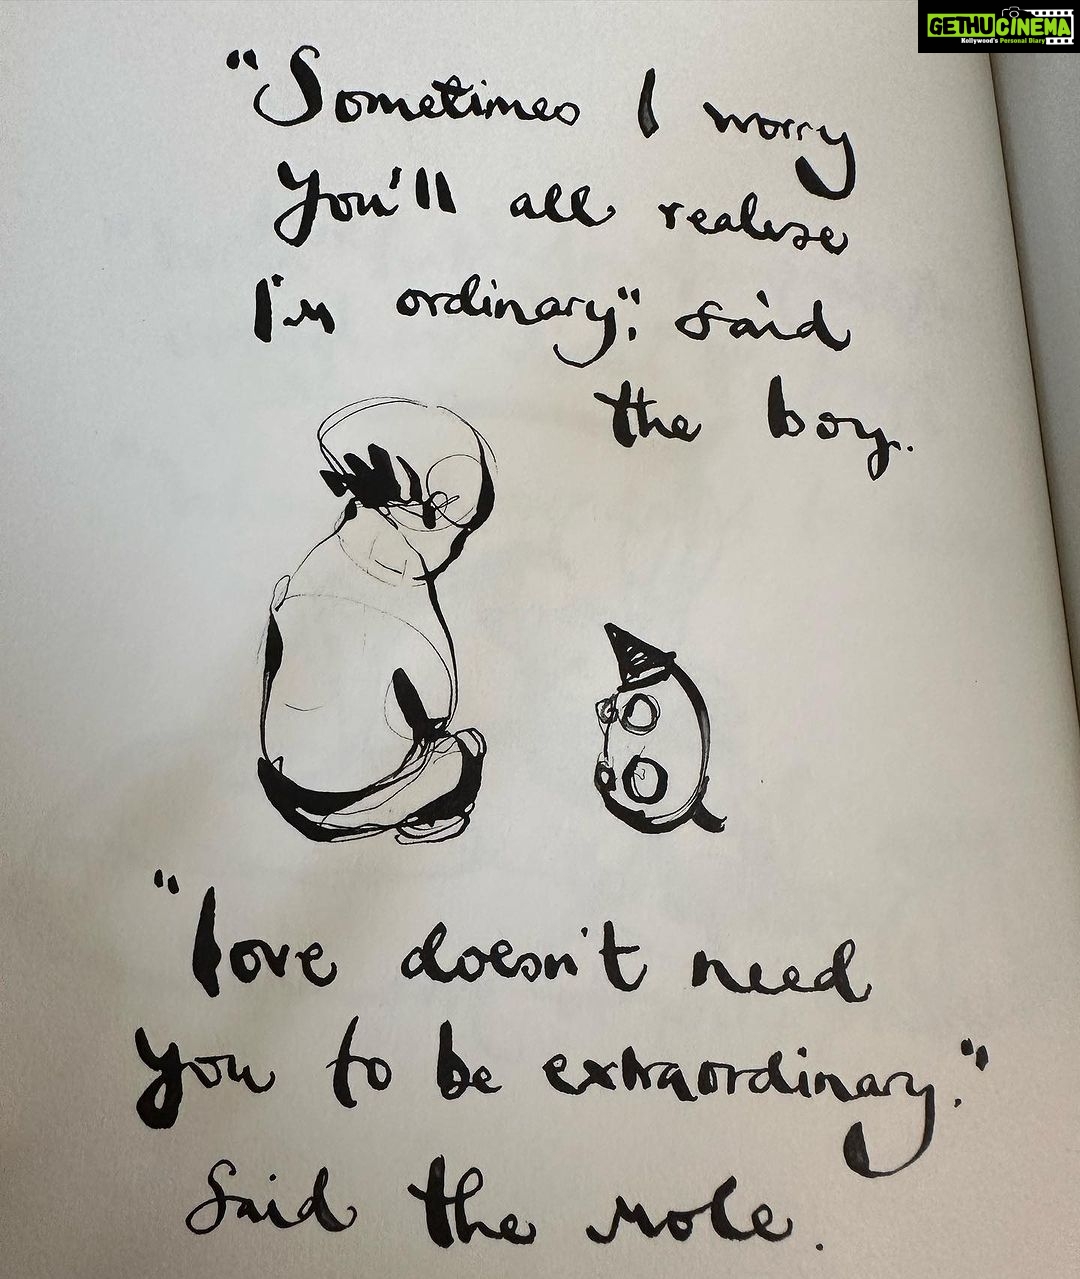 GETHUCINEMA
Kollywood's Personal Diary
"Sometimes I worry
you'll all realise
I'm ordinary", said
the boy.
"love doesn't need
you to be extraordinary."
said the mole.